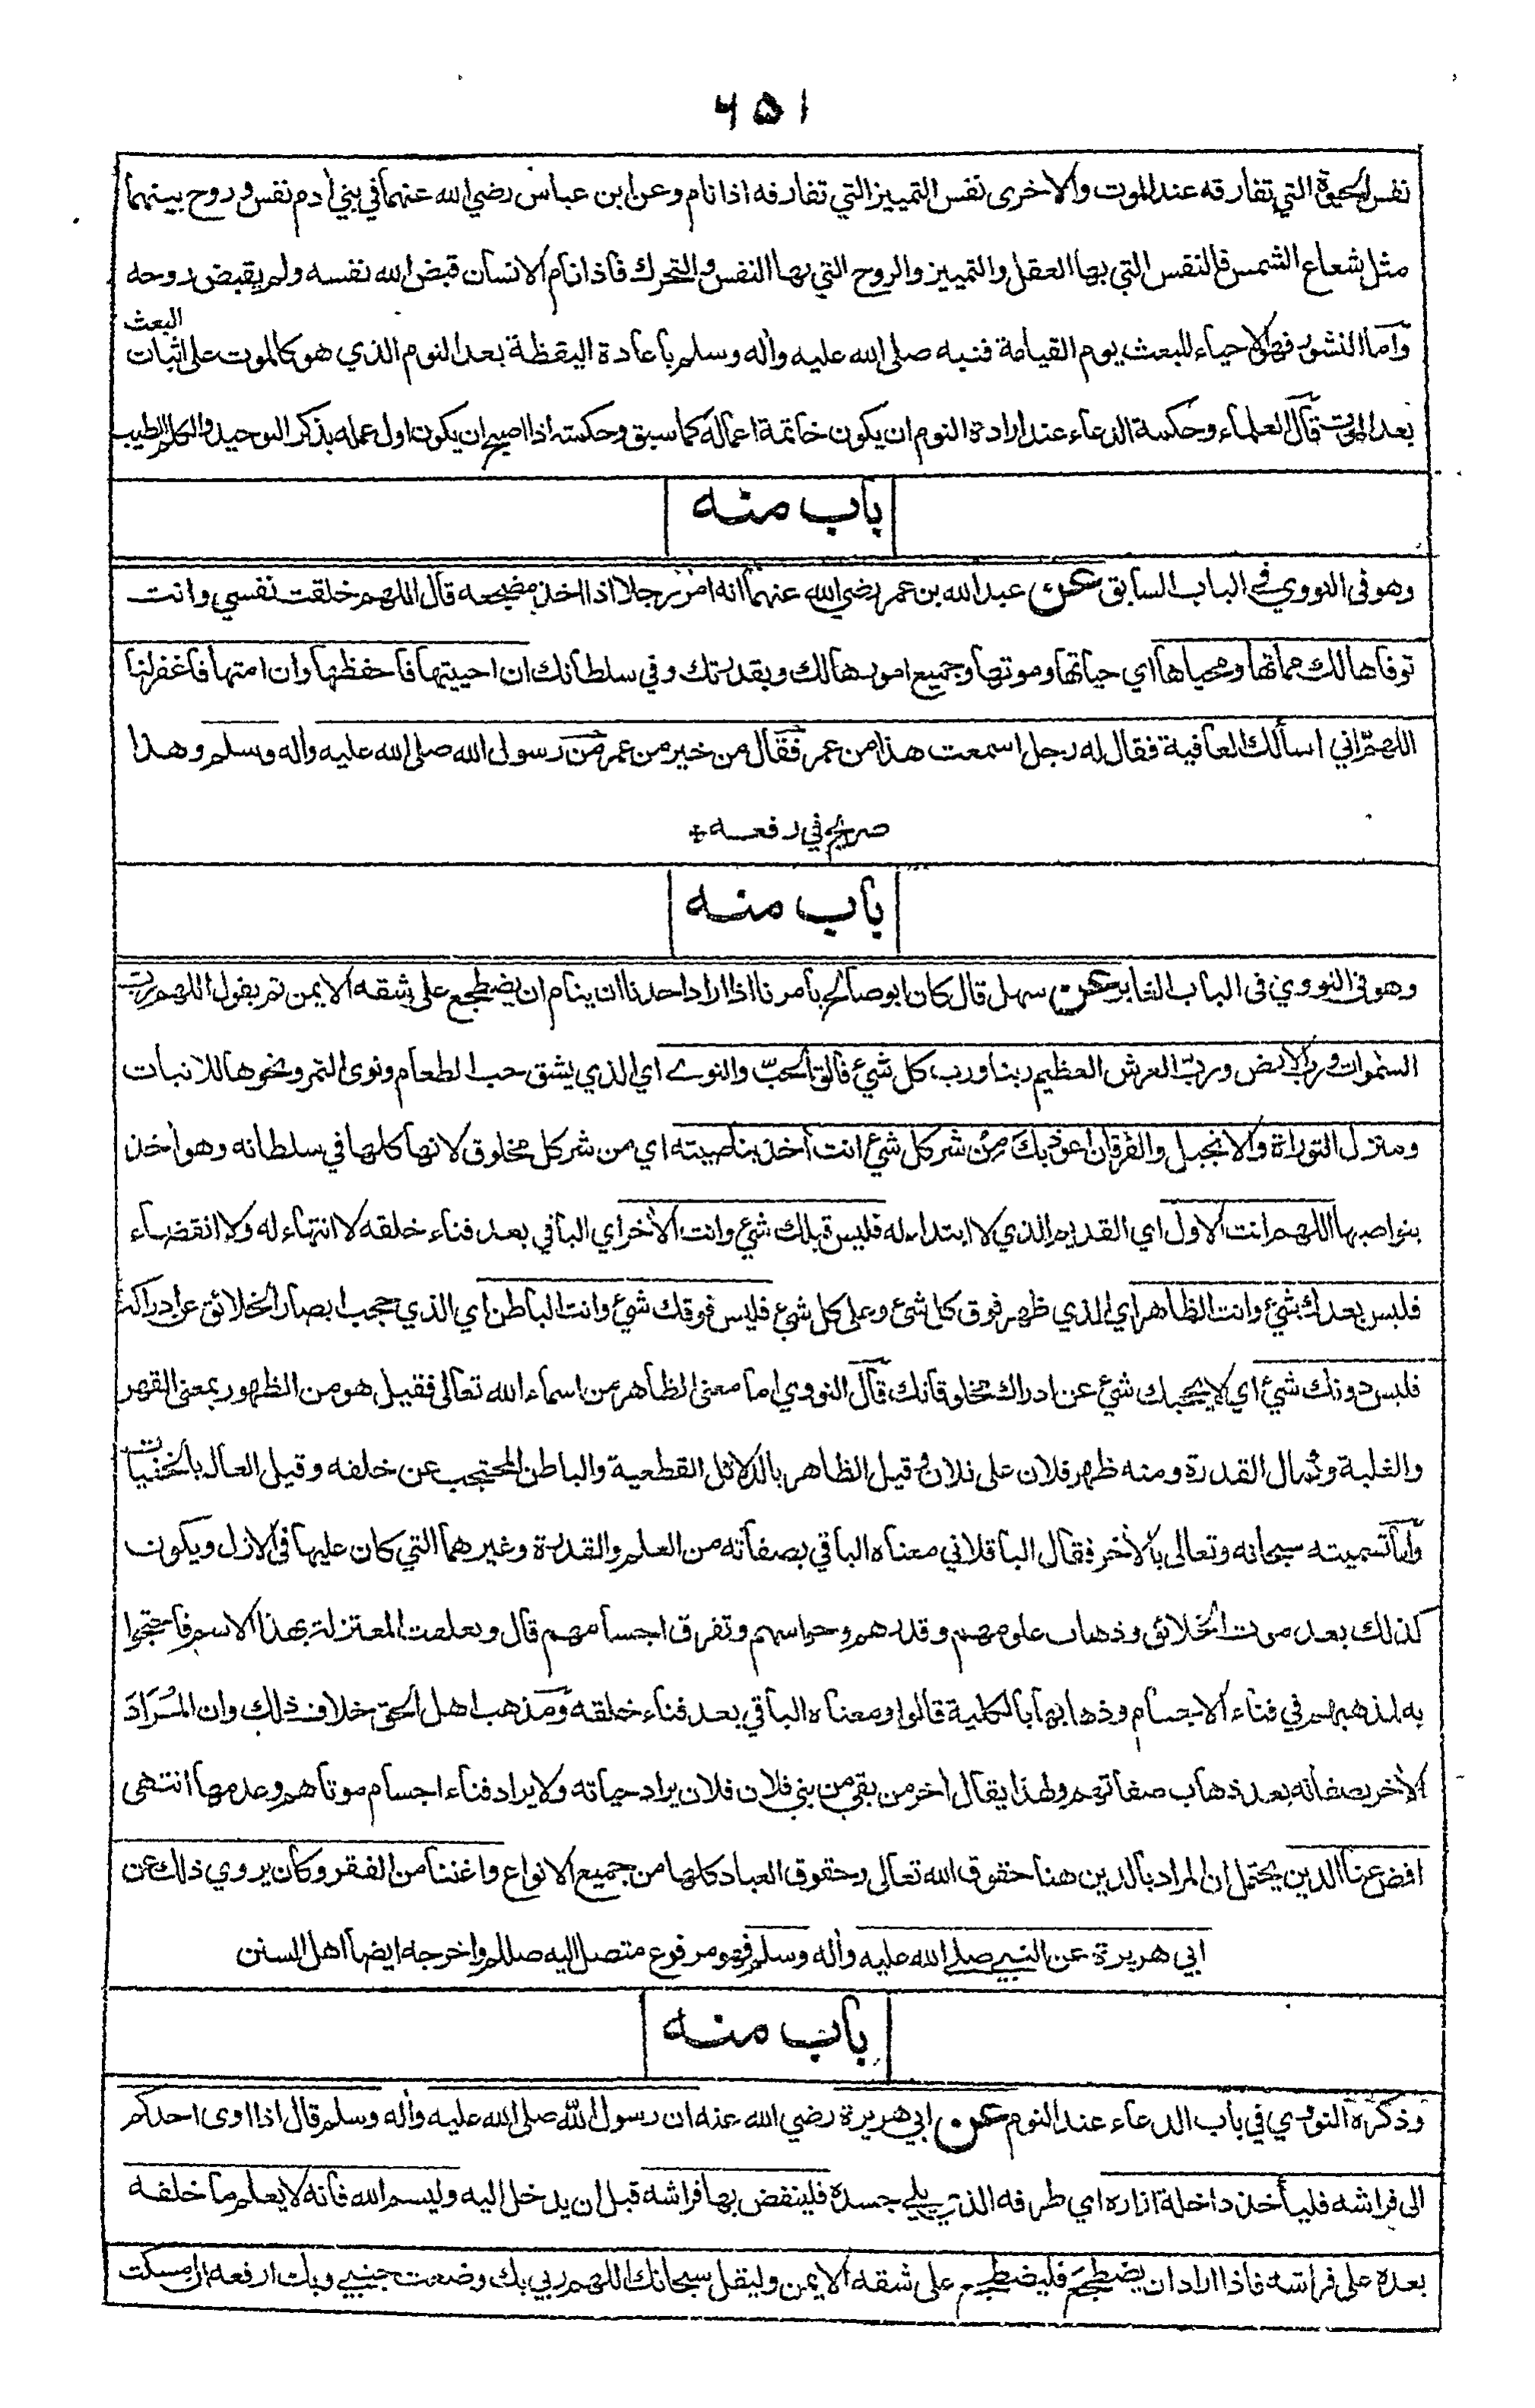 ٦٥١
نفس الحيوة التي تفارقه عند الموت والاخرى نفس التمييز التي تفارقه اذا نام وعن ابن عباس رضي الله عنهما في بني أدم نفس وروح بينهما
مثل شعاع الشمس فالنفس التي بها العقل والتمييز والروح التي بها النفس والتحرك فاذا نام الانسان قبض الله نفسه ولم يقبض روحه
وأما النشور فهو الاحياء للبعث يوم القيامة فنبه صلى الله عليه وأله وسلم بأعادة اليقظة بعد النوم الذي هو كالموت على اثبات البعث
بعد الموت قال العلماء وحكمة الدعاء عند ارادة النوم ان يكون خاتمة اعماله كما سبق وحكمته اذا اصبح ان يكون اول عمله بذكر التوحيد والكلم الطيب
باب منه
وهو فى النووي في الباب السابق عن عبد الله بن عمر رضي الله عنهما انه امر رجلا اذا اخذ مضجعه قال اللهم خلقت نفسي وانت
توفاها لك مماتها ومحياها أي حياتها وموتها وجميع امورها لك وبقدرتك وفي سلطانك ان احييتها فاحفظها وان امتها فاغفر لها
اللهم اني اسألك العافية فقال له رجل اسمعت هذا من عمر فقال من خير من عمر من رسول الله صلى الله عليه وأله وسلم وهذا
صريح في رفعه +
باب منه
وهو فى النووي فى الباب الغابر عن سهل قال كان ابو صالح يأمرنا اذا اراد احدنا ان ينام ان يضطجع على شقه الايمن ثم يقول اللهم رب
السموات ورب الارض ورب العرش العظيم ربنا ورب كل شئ فالق الحب والنوى اي الذي يشق حب الطعام ونوى التمر ونحوها للانبات
ومنزل التوراة والانجيل والفرقان اعوذ بك من شر كل شئ انت أخذ بناصيته اي من شر كل مخلوق لانها كلها في سلطانه وهو أخذ
بنواصيها اللهم انت الاول اي القديم الذي لا ابتداء له فليس قبلك شئ وانت الأخر اي الباقي بعد فناء خلقه لا انتهاء له ولا انقضاء
فليس بعدك شئ وانت الظاهر اي الذي ظهر فوق كل شئ وعلى كل شئ فليس فوقك شئ وانت الباطن اي الذي حجب ابصار الخلائق عن ادراكه
فليس دونك شئ اي لا يحجبك شئ عن ادراك مخلوقاتك قال النووي اما معنى الظاهر من اسماء الله تعالى فقيل هو من الظهور بمعنى القهر
والغلبة وكمال القدرة ومنه ظهر فلان على فلان وقيل الظاهر بالدلائل القطعية والباطن المحتجب عن خلقه وقيل العالم بالخفيات
وأما تسميته سبحانه وتعالى بالأخر فقال الباقلاني معناه الباقي بصفاته من العلم والقدرة وغيرهما التي كان عليها فى الازل ويكون
كذلك بعد موت الخلائق وذهاب علومهم وقدرهم وحواسهم وتفرق اجسامهم قال وتعلقت المعتزلة بهذا الاسم فاحتجوا
به لمذهبهم في فناء الاجسام وذهابها بالكلية قالوا ومعناه الباقي بعد فناء خلقه ومذهب اهل الحق خلاف ذلك وان المراد
الأخر بصفاته بعد ذهاب صفاتهم ولهذا يقال أخر من بقي من بني فلان فلان يراد حياته ولا يراد فناء اجسام موتاهم وعدمها انتهى
اقض عنا الدين يحتمل ان المراد بالدين هنا حقوق الله تعالى وحقوق العباد كلها من جميع الانواع واغننا من الفقر وكان يروي ذلك عن
ابي هريرة عن النبي صلى الله عليه وأله وسلم فهو مرفوع متصل اليه صللم واخرجه ايضا اهل السنن
باب منه
وذكره النووي في باب الدعاء عند النوم عن ابي هريرة رضي الله عنه ان رسول الله صلى الله عليه وأله وسلم قال اذا اوى احدكم
الى فراشه فليأخذ داخلة ازاره اي طرفه الذي يلي جسده فلينفض بها فراشه قبل ان يدخل اليه وليسم الله فأنه لا يعلم ما خلفه
بعده على فراشه فاذا اراد ان يضطجع فليضطجع على شقه الايمن وليقل سبحانك اللهم ربي بك وضعت جنبي وبك ارفعه ان امسكت